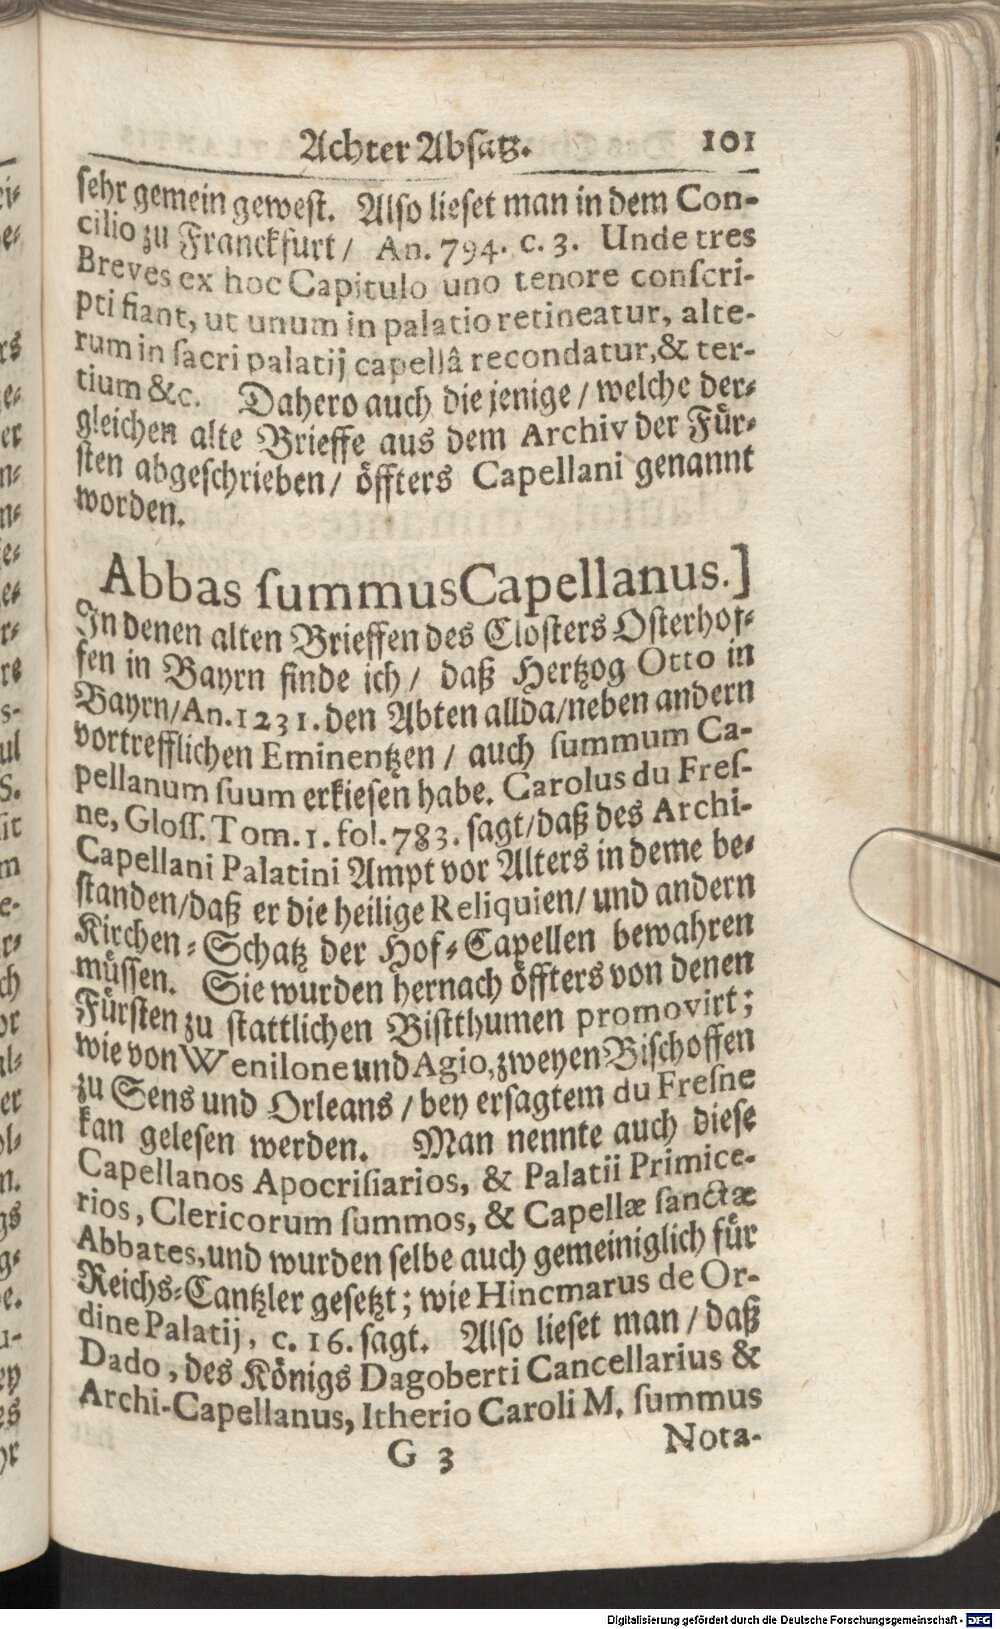 Achter Absatz. 101
sehr gemein gewest. Also lieset man in dem Con-
cilio zu Franckfurt / An. 794. c. 3. Unde tres
Breves ex hoc Capitulo uno tenore conſcri-
pti fiant, ut unum in palatio retineatur, alte-
rum in ſacri palatij capellâ recondatur, & ter-
tium &c. Dahero auch die jenige / welche der-
gleichen alte Brieffe aus dem Archiv der Fürſ-
ſten abgeſchrieben / öffters Capellani genannt
worden.
Abbas ſummus Capellanus.]
In denen alten Brieffen des Cloſters Oſterhof-
fen in Bayrn finde ich / daß Hertzog Otto in
Bayrn / An. 1231. den Abten allda / neben andern
vortrefflichen Eminentzen / auch ſummum Ca-
pellanum ſuum erkieſen habe. Carolus du Freſ-
ne, Gloſſ. Tom. 1. fol. 783. ſagt / daß des Archi-
Capellani Palatini Ampt vor Alters in deme be-
ſtanden / daß er die heilige Reliquien / und andern
Kirchen-Schatz der Hof-Capellen bewahren
müſſen. Sie wurden hernach öffters von denen
Fürſten zu ſtattlichen Biſtthumen promovirt;
wie von Wenilone und Agio, zweyen Biſchoffen
zu Sens und Orleans / bey erſagtem du Freſne
kan geleſen werden. Man nennte auch dieſe
Capellanos Apocriſiarios, & Palatii Primice-
rios, Clericorum ſummos, & Capellæ ſanctæ
Abbates, und wurden ſelbe auch gemeiniglich für
Reichs-Cantzler geſetzt; wie Hincmarus de Or-
dine Palatij, c. 16. ſagt. Alſo lieſet man / daß
Dado, des Königs Dagoberti Cancellarius &
Archi-Capellanus, Itherio Caroli M. ſummus
G 3 Nota-
Digitalisierung gefördert durch die Deutsche Forschungsgemeinschaft - DFG